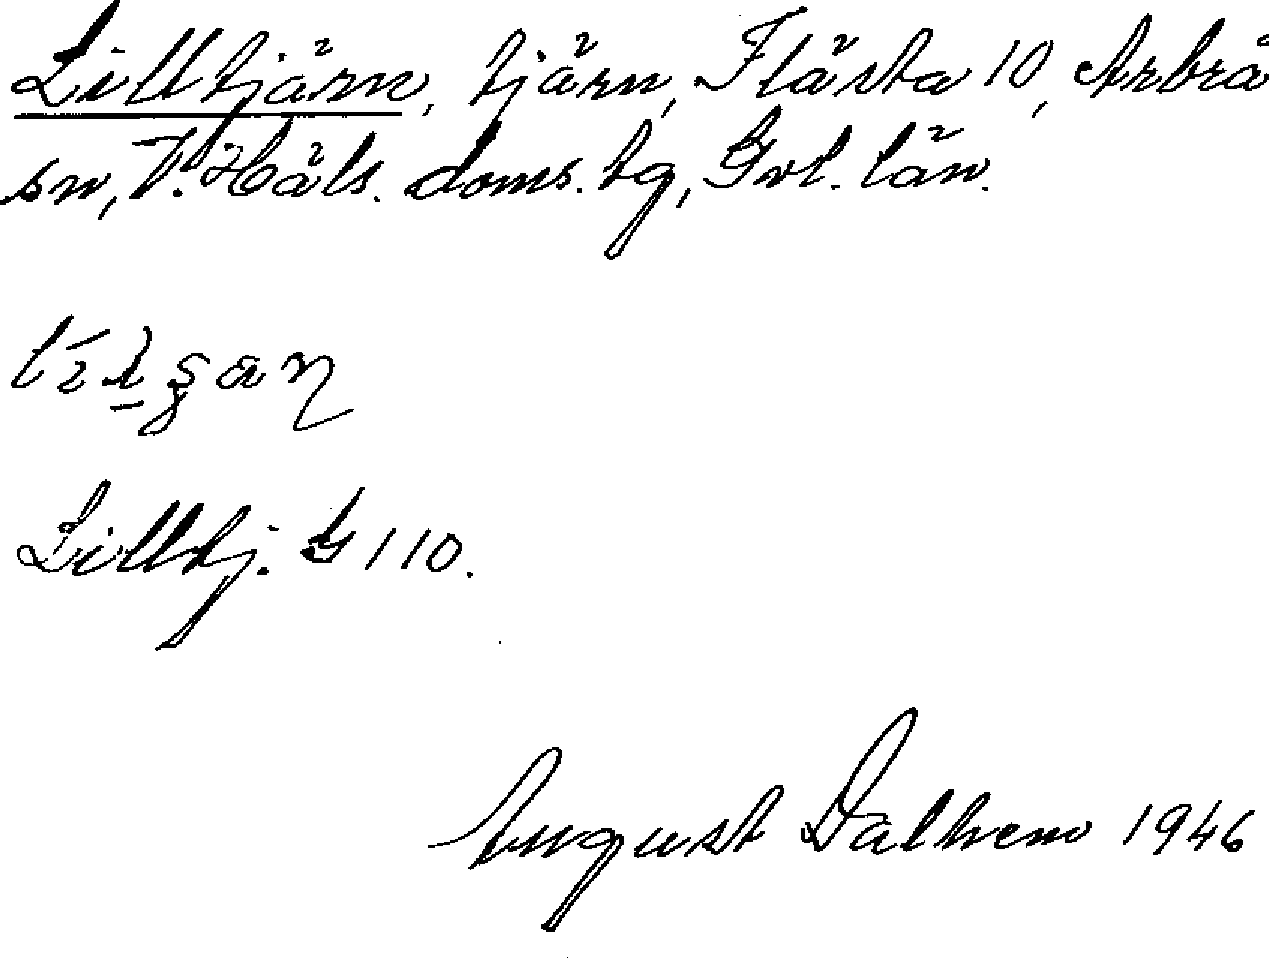 Lilltjärn, tjärn, Flästa 10, Arbrå
sn, V. Häls. doms. tg, Gvl. län.
Lilltj. G 110.
August Dalhem 1946